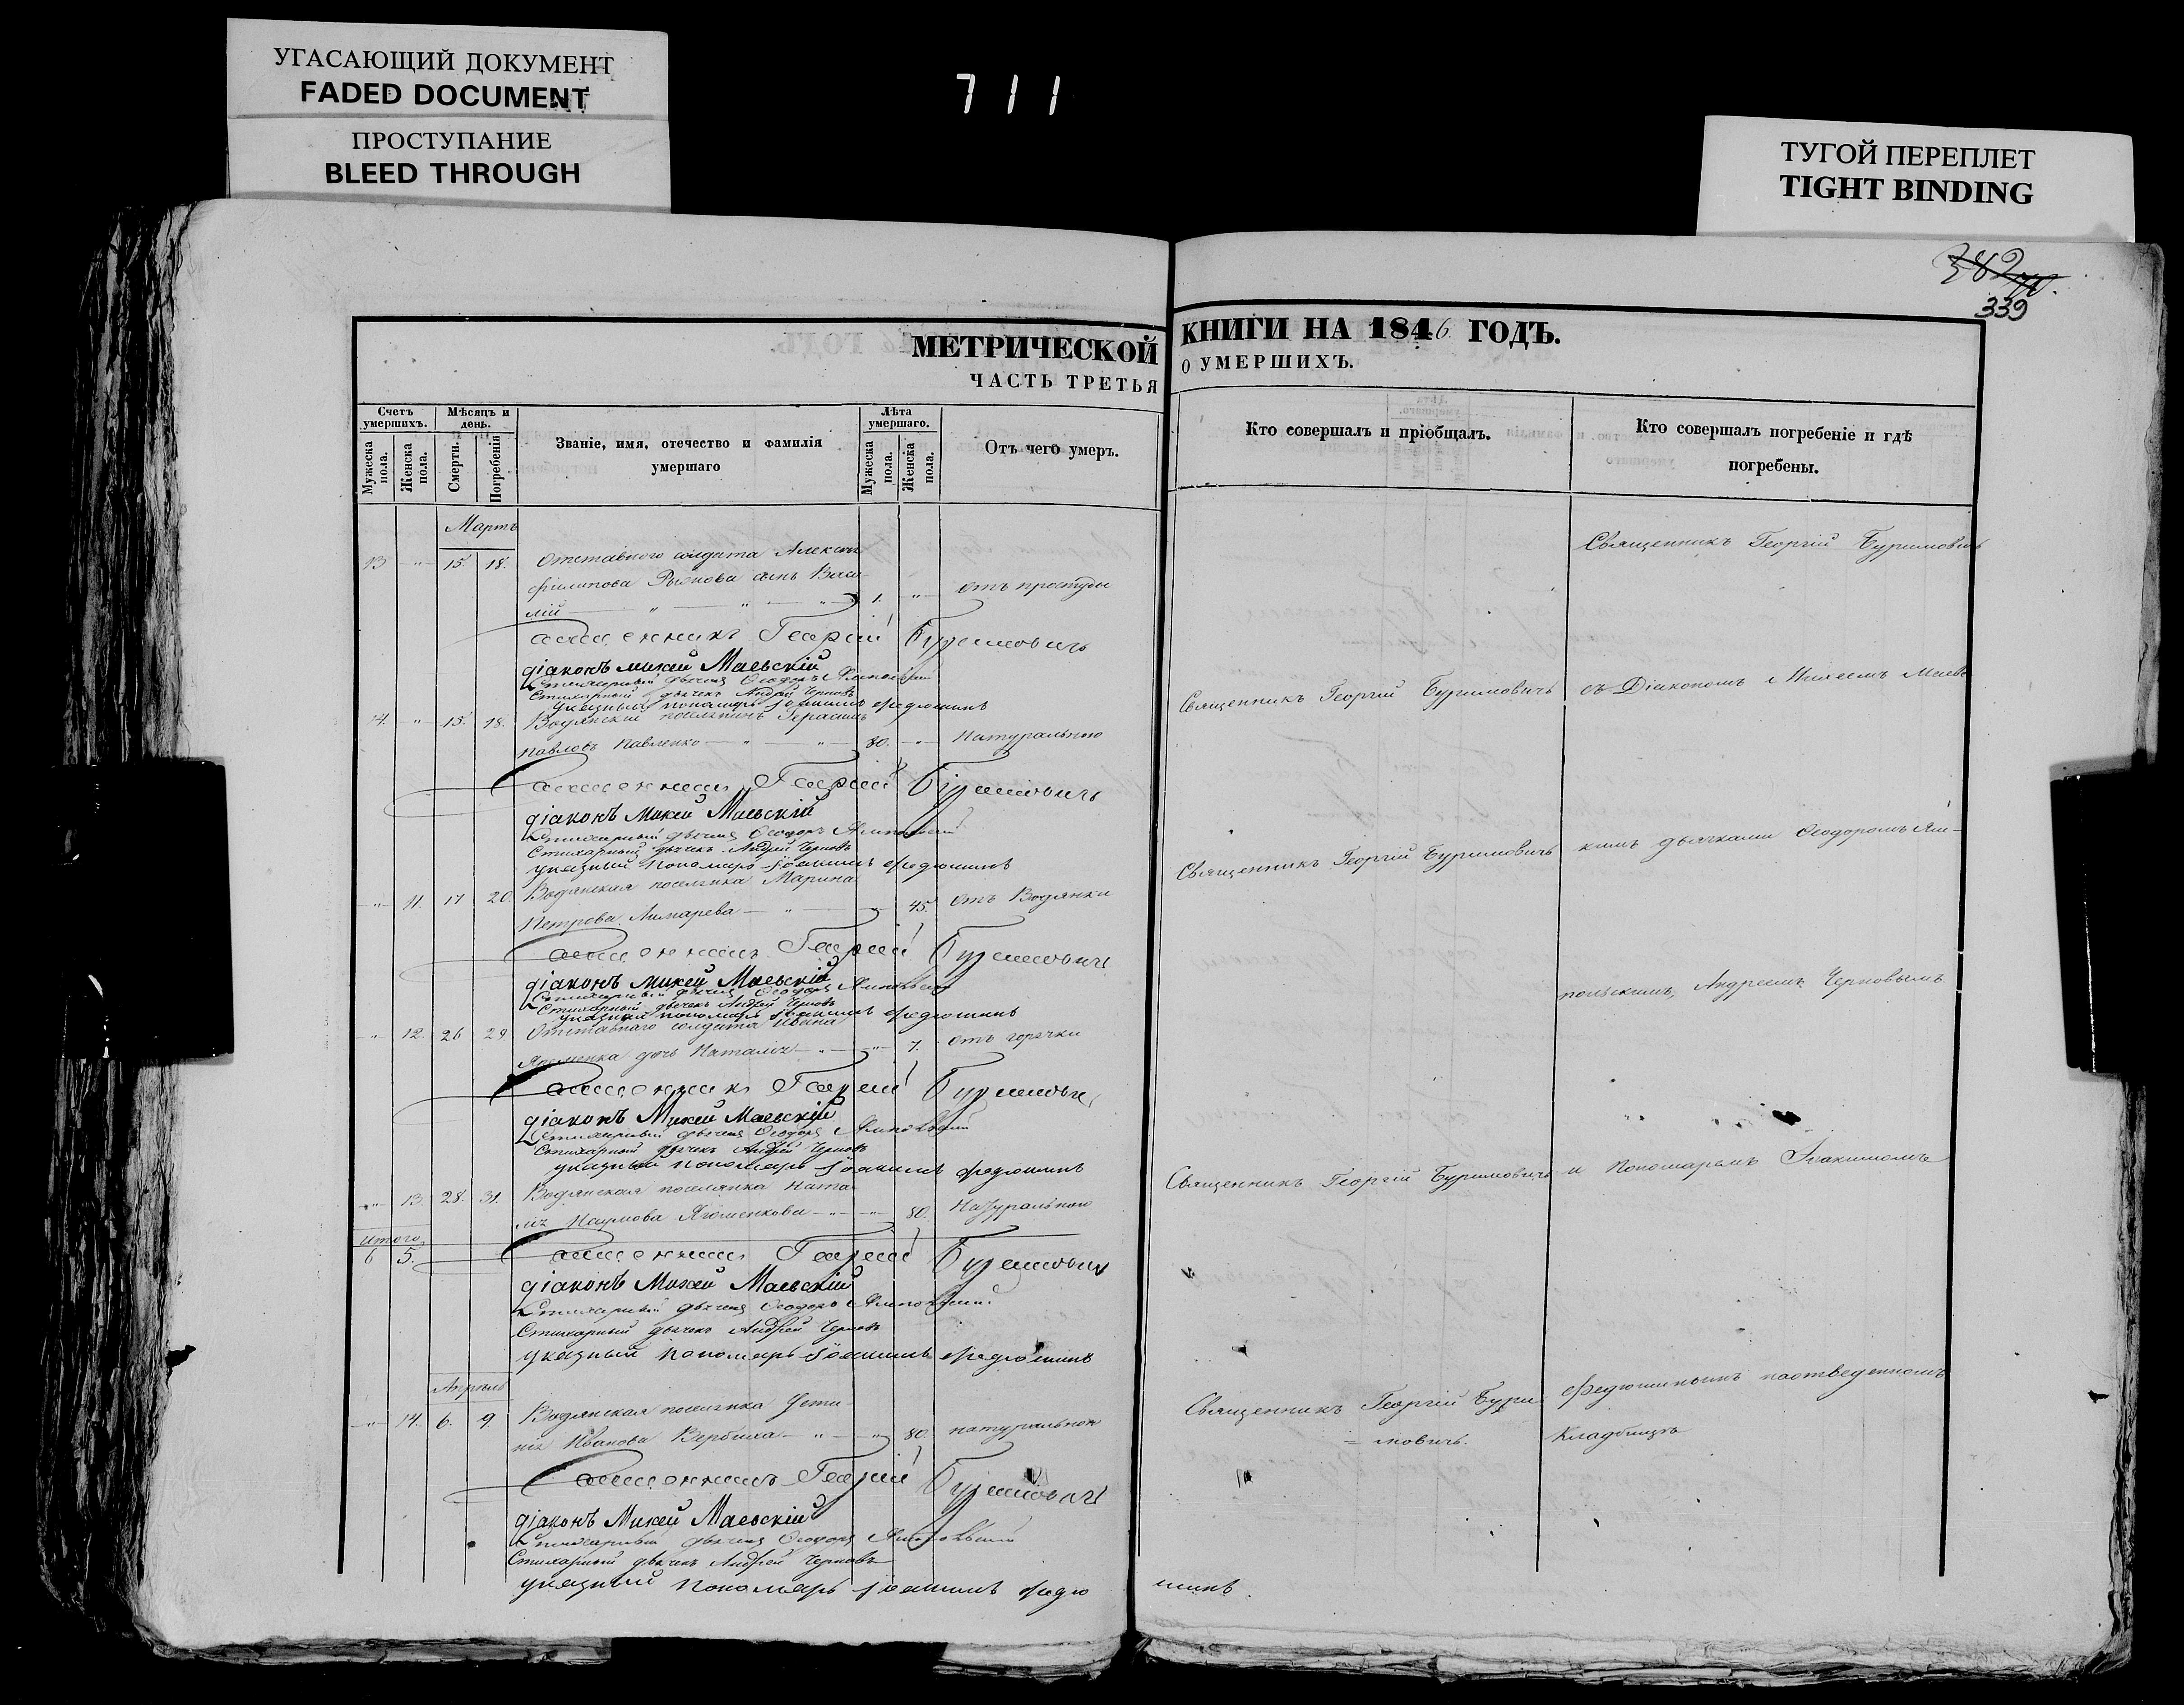 УГАСАЮЩИЙ ДОКУМЕНТ
FADED DOCUMENT
ПРОСТУПАНИЕ
BLEED THROUGH
711
ТУГОЙ ПЕРЕПЛЕТ
TIGHT BINDING
339
МЕТРИЧЕСКОЙ КНИГИ НА 1846 ГОДЪ.
ЧАСТЬ ТРЕТЬЯ О УМЕРШИХЪ.
Счетъ умершихъ.
Мужеска пола.
Женска пола.
Мѣсяцъ и день.
Смерти.
Погребенія
Званіе, имя, отечество и фамилія умершаго
Лѣта умершаго.
Мужеска пола.
Женска пола.
Отъ чего умеръ.
Кто совершалъ и пріобщалъ.
Кто совершалъ погребеніе и гдѣ погребены.
Мартъ
13 " 15. 18. Отставного солдата Алексѣя
Филипова сынъ Васи-
лій 1. " отъ простуды
Священникъ Георгій Буримовичъ
Священникъ Георгій Буримовичъ
діаконъ Михей Маевскій
Стихарный дьячекъ Ѳеодоръ Ямпольскій
Стихарный дьячекъ Андрей Черновъ
указный пономарь Іоакимъ Федюшинъ
14. " 15. 18. Водянскій поселянинъ Герасимъ
Павловъ Павленко 80. " Натуральною
Священникъ Георгій Буримовичъ
съ Діакономъ Михеемъ Маевс
Священникъ Георгій Буримовичъ
діаконъ Михей Маевскій
Стихарный дьячекъ Ѳеодоръ Ямпольскій
Стихарный дьячекъ Андрей Черновъ
указный пономарь Іоакимъ Федюшинъ
" 11. 17 20. Водянская поселянка Марина
Петрова Лимарева 45. отъ Водянки
Священникъ Георгій Буримовичъ
кимъ дьячками Ѳеодоромъ Ям-
Священникъ Георгій Буримовичъ
діаконъ Михей Маевскій
Стихарный дьячекъ Ѳеодоръ Ямпольскій
Стихарный дьячекъ Андрей Черновъ
указный пономарь Іоакимъ Федюшинъ
польскимъ, Андреемъ Черновымъ
" 12. 26 29 Отставнаго солдата Ивана
Яременка дочь Наталія 7. отъ горячки
Священникъ Георгій Буримовичъ
діаконъ Михей Маевскій
Стихарный дьячекъ Ѳеодоръ Ямпольскій
Стихарный дьячекъ Андрей Черновъ
указный пономарь Іоакимъ Федюшинъ
" 13 28. 31. Водянская поселянка Ната-
лія Наумова 80. Натуральною
Священникъ Георгій Буримовичъ
и Пономаремъ Іоакимомъ
Итого
6 5.
Священникъ Георгій Буримовичъ
діаконъ Михей Маевскій
Стихарный дьячекъ Ѳеодоръ Ямпольскій
Стихарный дьячекъ Андрей Черновъ
указный пономарь Іоакимъ Федюшинъ
Апрѣль
" 14. 6. 9 Водянская поселянка Усти-
нія Иванова Вербиха 80. натуральною
Священникъ Георгій Бури
мовичъ.
Федюшинымъ наотведенномъ
Кладбищѣ
Священникъ Георгій Буримовичъ
діаконъ Михей Маевскій
Стихарный дьячекъ Ѳеодоръ Ямпольскій
Стихарный дьячекъ Андрей Черновъ
указный пономарь Іоакимъ Федю шинъ.